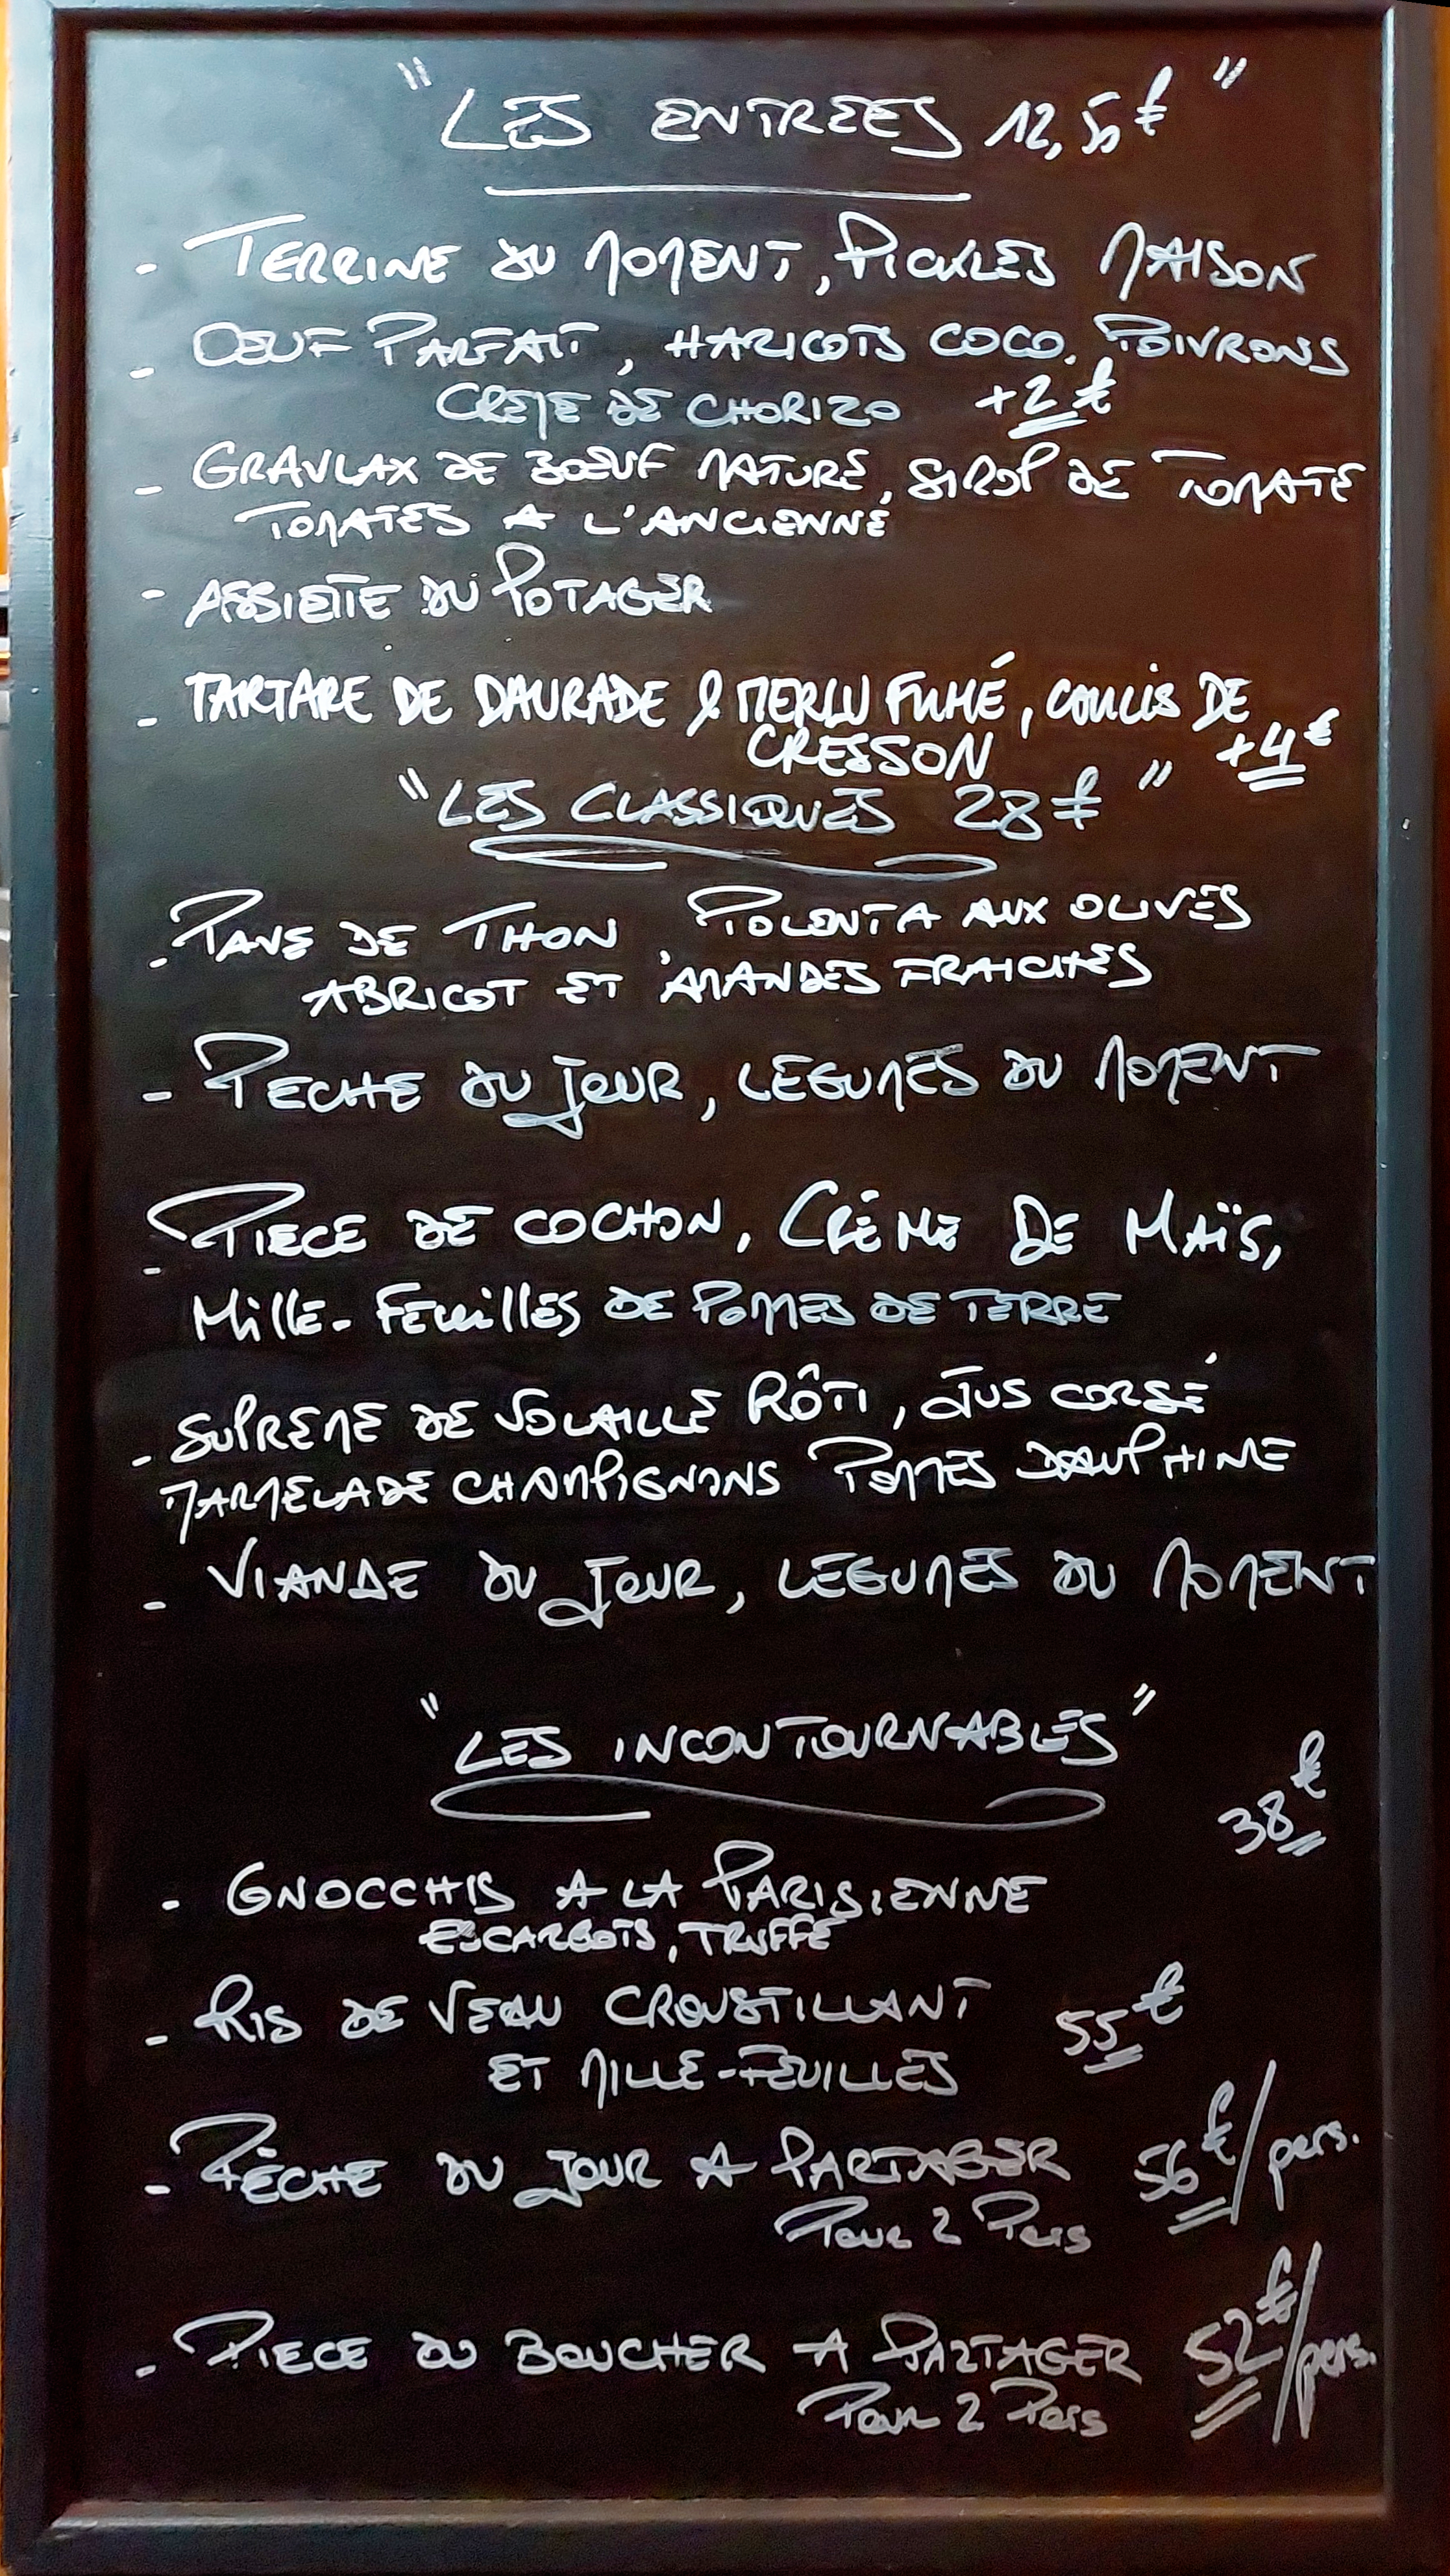 " LES ENTREES 12,50€ "
- TERRINE DU MOMENT, PICKLES MAISON
- OEUF PARFAIT, HARICOTS COCO, POIVRONS
CREME DE CHORIZO +2€
- GRAVLAX DE BOEUF MATURE, SIROP DE TOMATE
TOMATES A L'ANCIENNE
- ASSIETTE DU POTAGER
- TARTARE DE DAURADE & MERLU FUMÉ, COULIS DE
CRESSON +4€
" LES CLASSIQUES 28€ "
- PAVE DE THON, POLENTA AUX OLIVES
ABRICOT ET AMANDES FRAICHES
- PECHE DU JOUR, LEGUMES DU MOMENT
- PIECE DE COCHON, CRÈME DE MAÏS,
MILLE-FEUILLES DE POMMES DE TERRE
- SUPREME DE VOLAILLE RÔTI, JUS CORSÉ
MARMELADE CHAMPIGNONS POMMES DAUPHINE
- VIANDE DU JOUR, LEGUMES DU MOMENT
" LES INCONTOURNABLES "
38€
- GNOCCHIS A LA PARISIENNE
ESCARGOTS, TRUFFE
- RIS DE VEAU CROUSTILLANT 55€
ET MILLE-FEUILLES
- PÊCHE DU JOUR A PARTAGER 56€/pers.
Pour 2 Pers
- PIECE DU BOUCHER A PARTAGER 52€/pers.
Pour 2 Pers